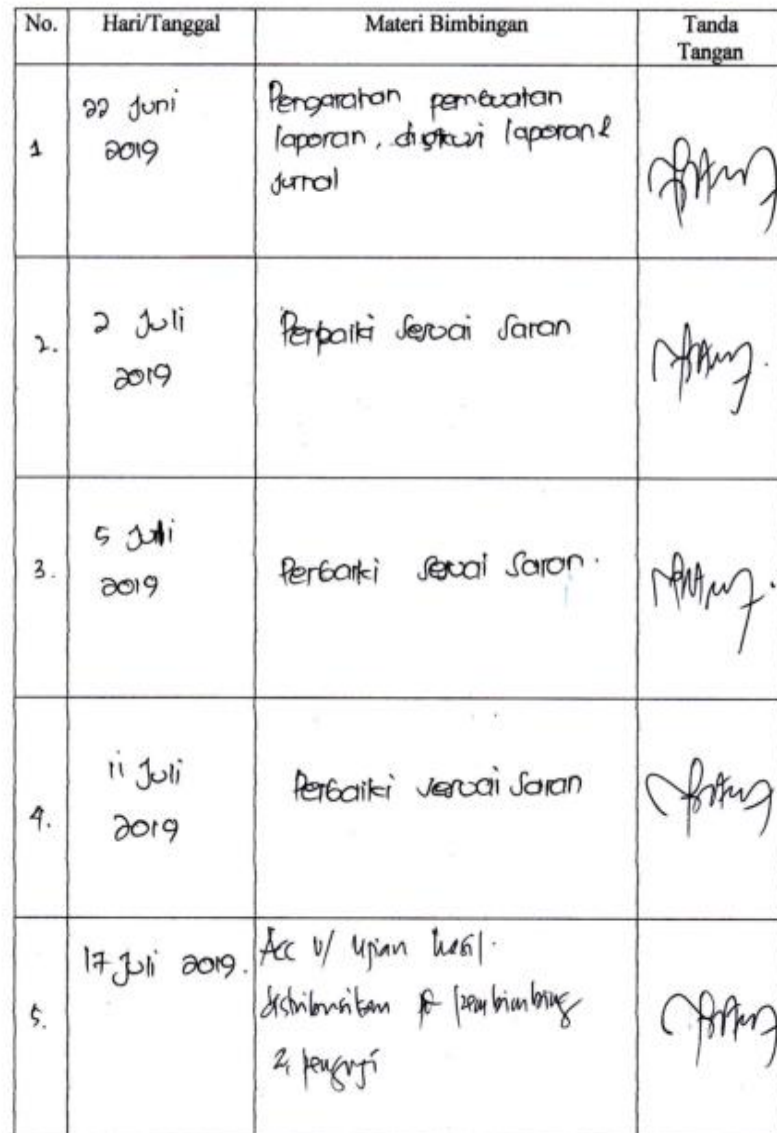 No. Hari/Tanggal Materi Bimbingan Tanda
Tangan
22 Juni Pengarahan pembuatan
1 2019 laporan, diskusi laporan &
Jurnal
2. 2 Juli Perbaiki sesuai saran
2019
3. 5 Juli
2019 Perbaiki sesuai saran.
11 Juli Perbaiki sesuai saran
4. 2019
17 Juli 2019. Acc u/ ujian hasil.
5. distribusikan pembimbing
2, penguji